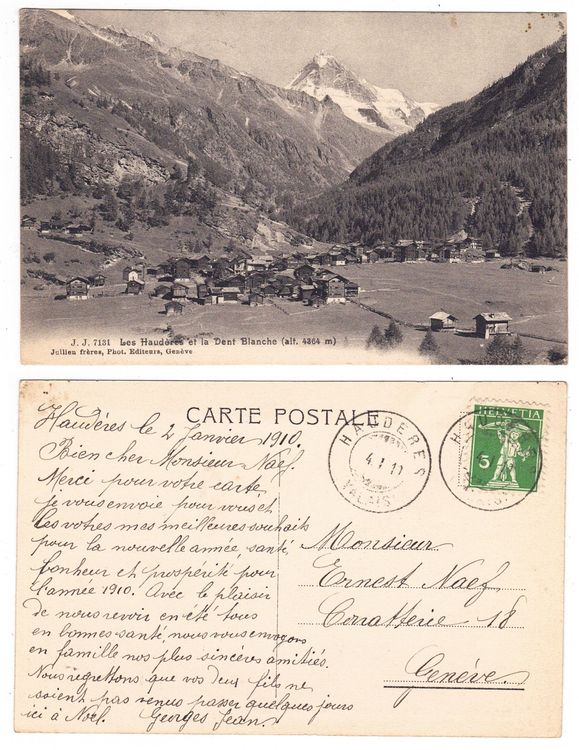 J. J. 7131 Les Haudères et la Dent Blanche (alt. 4364 m)
Jullien frères, Phot. Editeurs, Genève
CARTE POSTALE
HAUDÈRES
4. I 10
VALAIS
HELVETIA
5
Haudères le 2 Janvier 1910.
Bien cher Monsieur Naef.
Merci pour votre carte,
je vous envoie pour vous et
les votres mes meilleures souhaits
pour la nouvelle année, santé,
bonheur et prospérité pour
l'année 1910. Avec le plaisir
de nous revoir en été tous
en bonnes santé, nous vous envoyons
en famille nos plus sincères amitiés.
Nous regrettons que vos deux fils ne
soient pas venus passer quelques jours
ici à Noël. Georges Jean.
Monsieur
Ernest Naef
Corratterie 18
Genève.